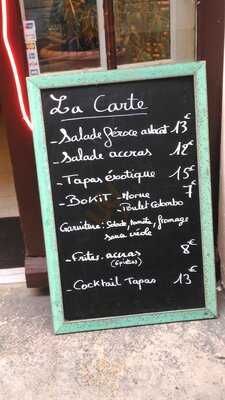 La Carte
-Salade féroce avocat 13€
-Salade accras 12€
-Tapas éxotique 15€
-BOKIT -Morue 7€
-Poulet Colombo
Garniture: Salade, tomate, fromage
sauce créole
-Frites. accras 8€
(6 pièces)
-Cocktail Tapas 13€